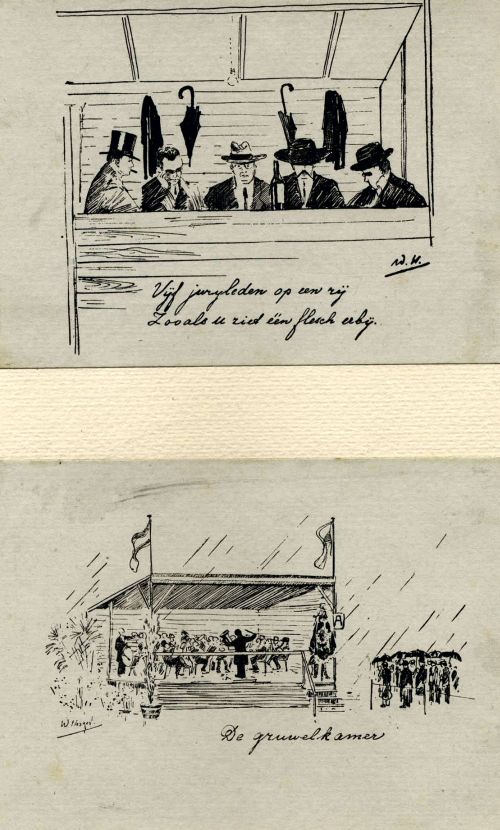 W. H.
Vijf juryleden op een rij
Zooals u ziet één flesch erbij.
A
De gruwelkamer